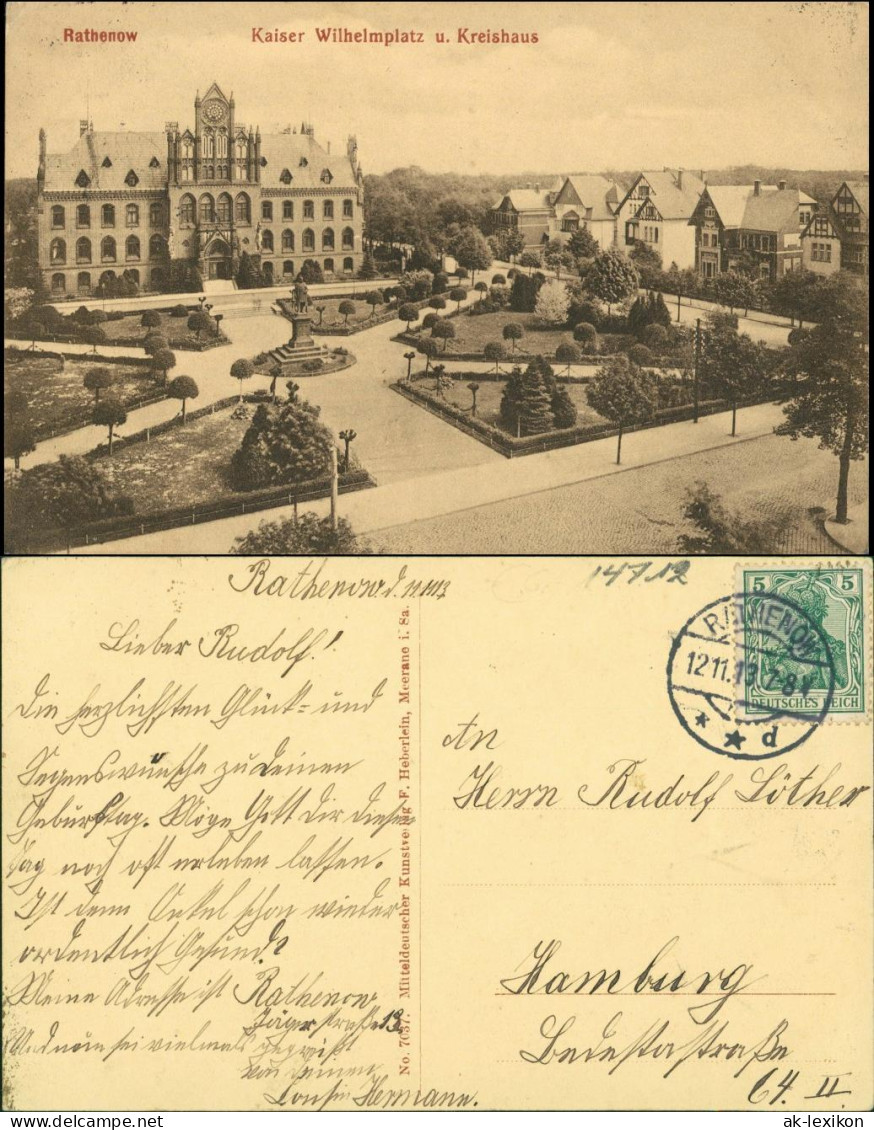 Rathenow
Kaiser Wilhelmplatz u. Kreishaus
Rathenow d.
Lieber Rudolf!
Die herzlichsten Glück= und
Segenswünsche zu Deinen
Geburtstag. Möge Gott Dir diesen
Tag noch oft erleben lassen.
Ist denn Onkel schon wieder
ordentlich Gesund?
Meine Adresse ist Rathenow
Jägerstraße 13.
Und nun sei vielmals gegrüßt
von Deinem
Cousin Hermann.
No. 7037. Mitteldeutscher Kunstverlag F. Heberlein, Meerane i. Sa.
14712
5 5
DEUTSCHES REICH
RATHENOW
12.11.13. 7-8 V
* * d
An
Herrn Rudolf Löther
Hamburg
straße
64. II.
ak-lexikon